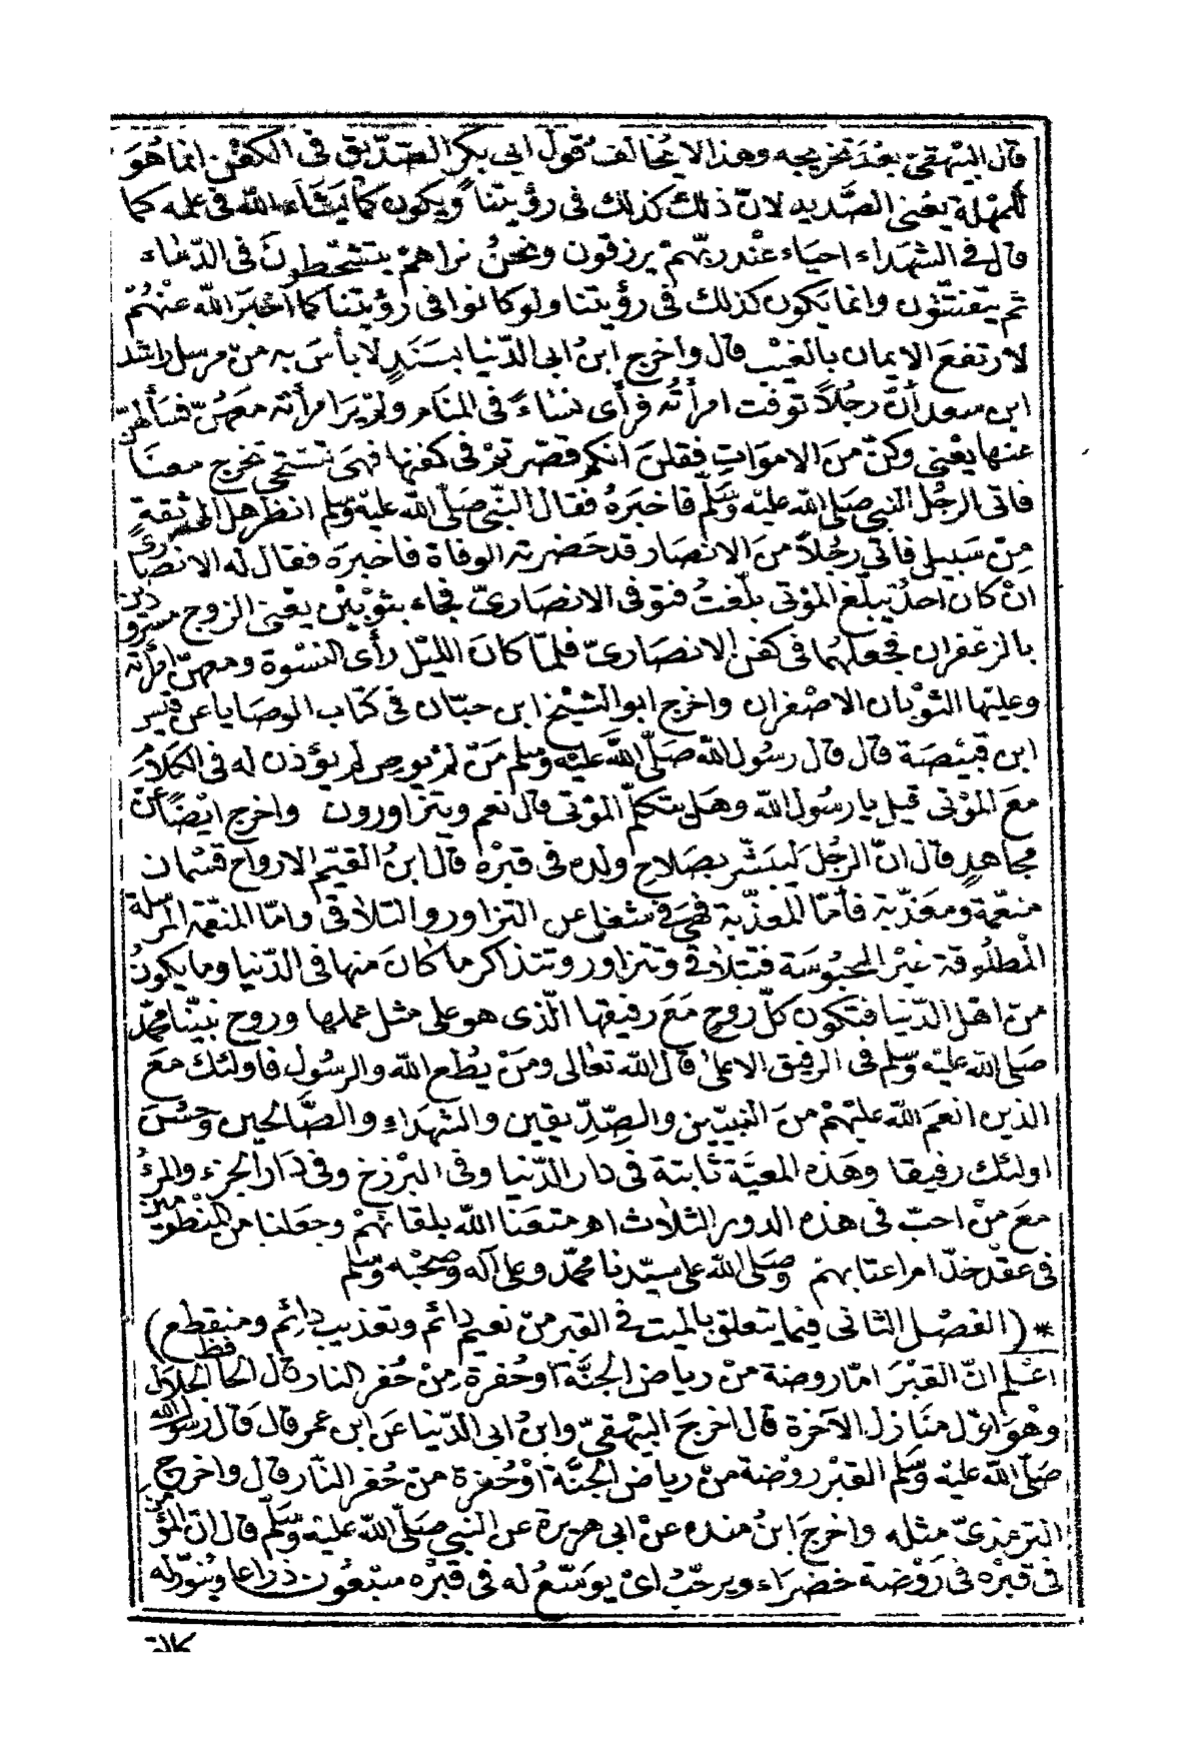 قال البيهقي بعد تخريجه وهذا لا يخالف قول ابى بكر الصديق فى الكفن انما هو
للمهلة يعنى الصديد لان ذلك كذلك فى رؤيتنا ويكون كما يشاء الله فى علمه كما
قال فى الشهداء احياء عند ربهم يرزقون ونحن نراهم يتشحطون فى الدماء
ثم يتفتتون وانما يكون كذلك فى رؤيتنا ولو كانوا فى رؤيتنا كما اخبر الله عنهم
لارتفع الايمان بالغيب قال واخرج ابن ابى الدنيا بسند لا بأس به من مرسل راشد
ابن سعد أن رجلاً توفت امرأته فرأى نساءً فى المنام ولم ير امرأته معهن فسألهن
عنها يعنى وكن من الاموات فقلن انكم قصرتم فى كفنها فهى تستحى تخرج معنا
فاتى الرجل النبى صلى الله عليه وسلم فاخبره فقال النبى صلى الله عليه وسلم انظر هل الى ثقة
من سبيل فأتى رجلاً من الانصار قد حضرته الوفاة فاخبره فقال له الانصارى
ان كان احد يبلغ الموتى بلغت فتوفى الانصارى فجاء بثوبين يعنى الزوج مسرورين
بالزعفران فجعلهما فى كفن الانصارى فلما كان الليل رأى النسوة ومعهن امرأته
وعليها الثوبان الاصفران واخرج ابو الشيخ ابن حبان فى كتاب الوصايا عن قيس
ابن قبيصة قال قال رسول الله صلى الله عليه وسلم من لم يوص لم يؤذن له فى الكلام
مع الموتى قيل يا رسول الله وهل يتكلم الموتى قال نعم ويتزاورون واخرج ايضاً عن
مجاهد قال ان الرجل ليبشر بصلاح ولده فى قبره قال ابن القيم الارواح قسمان
منعمة ومعذبة فأما المعذبة فهى فى شغل عن التزاور والتلاقى واما المنعمة المرسلة
المطلوقة غير المحبوسة فتتلاقى وتتزاور وتتذاكر ما كان منها فى الدنيا وما يكون
من اهل الدنيا فتكون كل روح مع رفيقها الذى هو على مثل عملها وروح نبينا محمد
صلى الله عليه وسلم فى الرفيق الاعلى قال الله تعالى ومن يطع الله والرسول فاولئك مع
الذين انعم الله عليهم من النبيين والصديقين والشهداء والصالحين وحسن
اولئك رفيقا وهذه المعية ثابتة فى دار الدنيا وفى البرزخ وفى دار الجزء والمرء
مع من احب فى هذه الدور الثلاث اهـ متعنا الله بلقائهم وجعلنا من المنظومين
فى عقد خدام اعتابهم وصلى الله على سيدنا محمد وعلى آله وصحبه وسلم
* (الفصل الثانى فيما يتعلق بالميت فى القبر من نعيم دائم وتعذيب دائم ومنقطع)
اعلم ان القبر اما روضة من رياض الجنة او حفرة من حفر النار قال الحافظ الجلال
وهو اول منازل الآخرة قال اخرج البيهقى وابن ابى الدنيا عن ابن عمر قال قال رسول الله
صلى الله عليه وسلم القبر روضة من رياض الجنة او حفرة من حفر النار قال واخرج
الترمذى مثله واخرج ابن منده عن ابى هريرة عن النبى صلى الله عليه وسلم قال ان المؤمن
فى قبره فى روضة خضراء ويرحب اى يوسع له فى قبره سبعون ذراعا وينور له